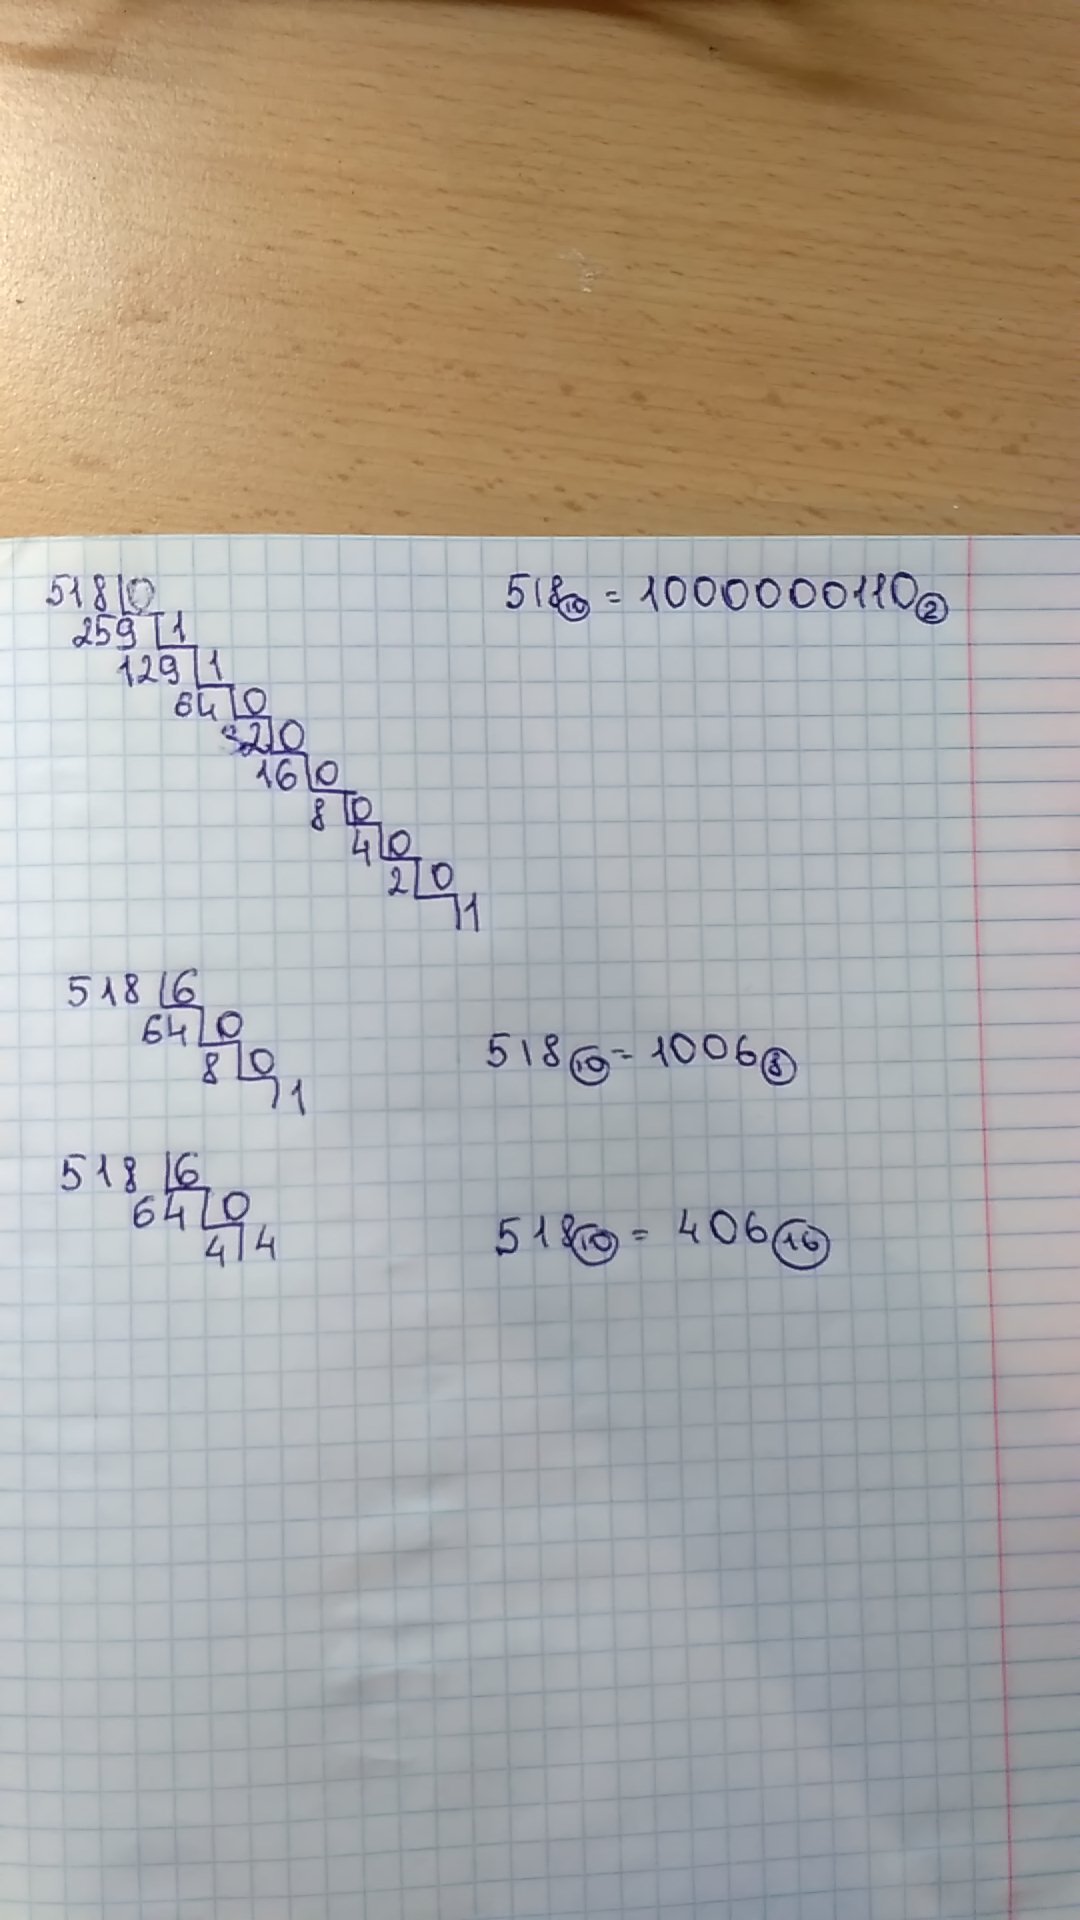 518 0 518 10 = 1000000110 2
259 1
129 1
64 0
32 0
16 0
8 0
4 0
2 0
1
518 6
64 0
8 0 518 10 = 1006 8
1
518 6
64 0
4 4 518 10 = 406 16